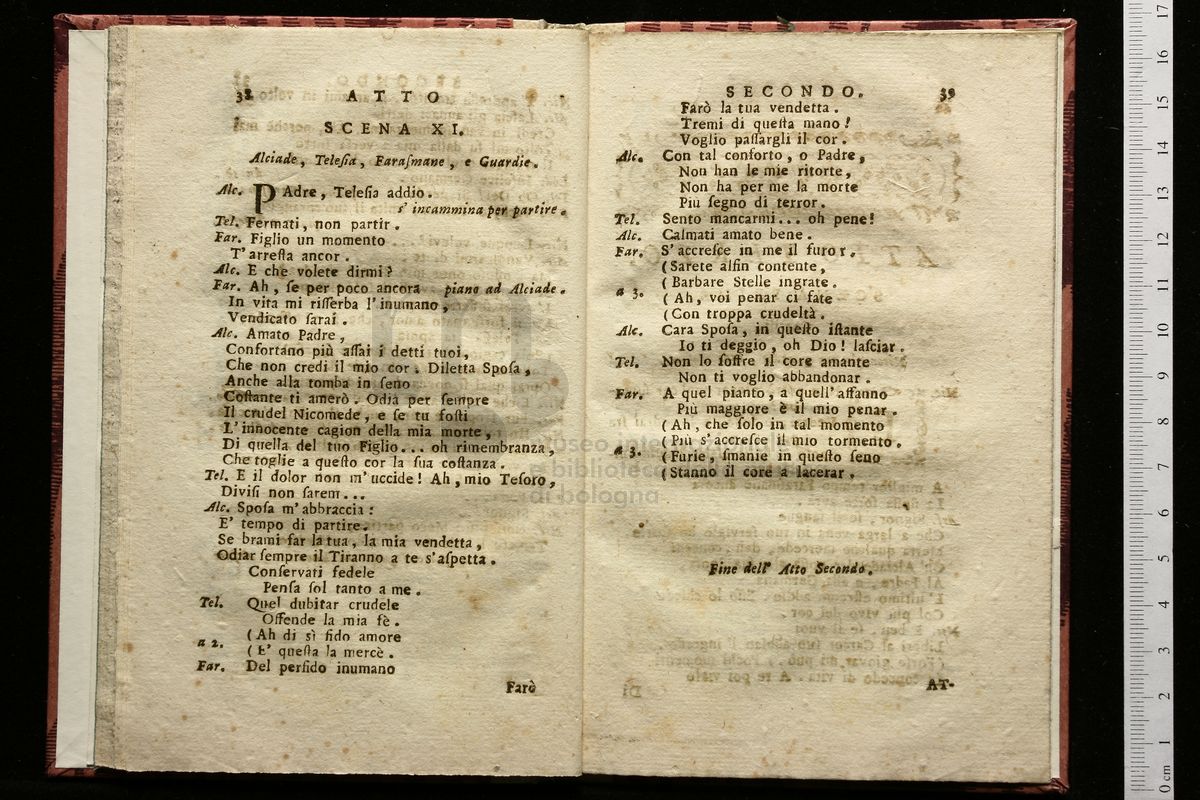 38 ATTO
SCENA XI.
Alciade, Telesia, Farasmane, e Guardie.
Alc. PAdre, Telesia addio.
s' incammina per partire.
Tel. Fermati, non partir.
Far. Figlio un momento
T' arresta ancor.
Alc. E che volete dirmi?
Far. Ah, se per poco ancora piano ad Alciade.
In vita mi risserba l' inumano,
Vendicato sarai.
Alc. Amato Padre,
Confortano più assai i detti tuoi,
Che non credi il mio cor. Diletta Sposa,
Anche alla tomba in seno
Costante ti amerò. Odia per sempre
Il crudel Nicomede, e se tu fosti
L' innocente cagion della mia morte,
Di quella del tuo Figlio... oh rimembranza,
Che toglie a questo cor la sua costanza.
Tel. E il dolor non m' uccide! Ah, mio Tesoro,
Divisi non sarem...
Alc. Sposa m' abbraccia:
E' tempo di partire.
Se brami far la tua, la mia vendetta,
Odiar sempre il Tiranno a te s' aspetta.
Conservati fedele
Pensa sol tanto a me.
Tel. Quel dubitar crudele
Offende la mia fè.
a 2. (Ah di sì fido amore
( E' questa la mercè.
Far. Del perfido inumano
Farò
SECONDO. 39
Farò la tua vendetta.
Tremi di questa mano!
Voglio passargli il cor.
Alc. Con tal conforto, o Padre,
Non han le mie ritorte,
Non ha per me la morte
Più segno di terror.
Tel. Sento mancarmi... oh pene!
Alc. Calmati amato bene.
Far. S' accresce in me il furor.
(Sarete alfin contente,
( Barbare Stelle ingrate.
a 3. ( Ah, voi penar ci fate
(Con troppa crudeltà.
Alc. Cara Sposa, in questo istante
Io ti deggio, oh Dio! lasciar.
Tel. Non lo soffre il core amante
Non ti voglio abbandonar.
Far. A quel pianto, a quell' affanno
Più maggiore è il mio penar.
(Ah, che solo in tal momento
(Più s' accresce il mio tormento.
a 3. (Furie, smanie in questo seno
(Stanno il core a lacerar.
Fine dell' Atto Secondo.
AT-